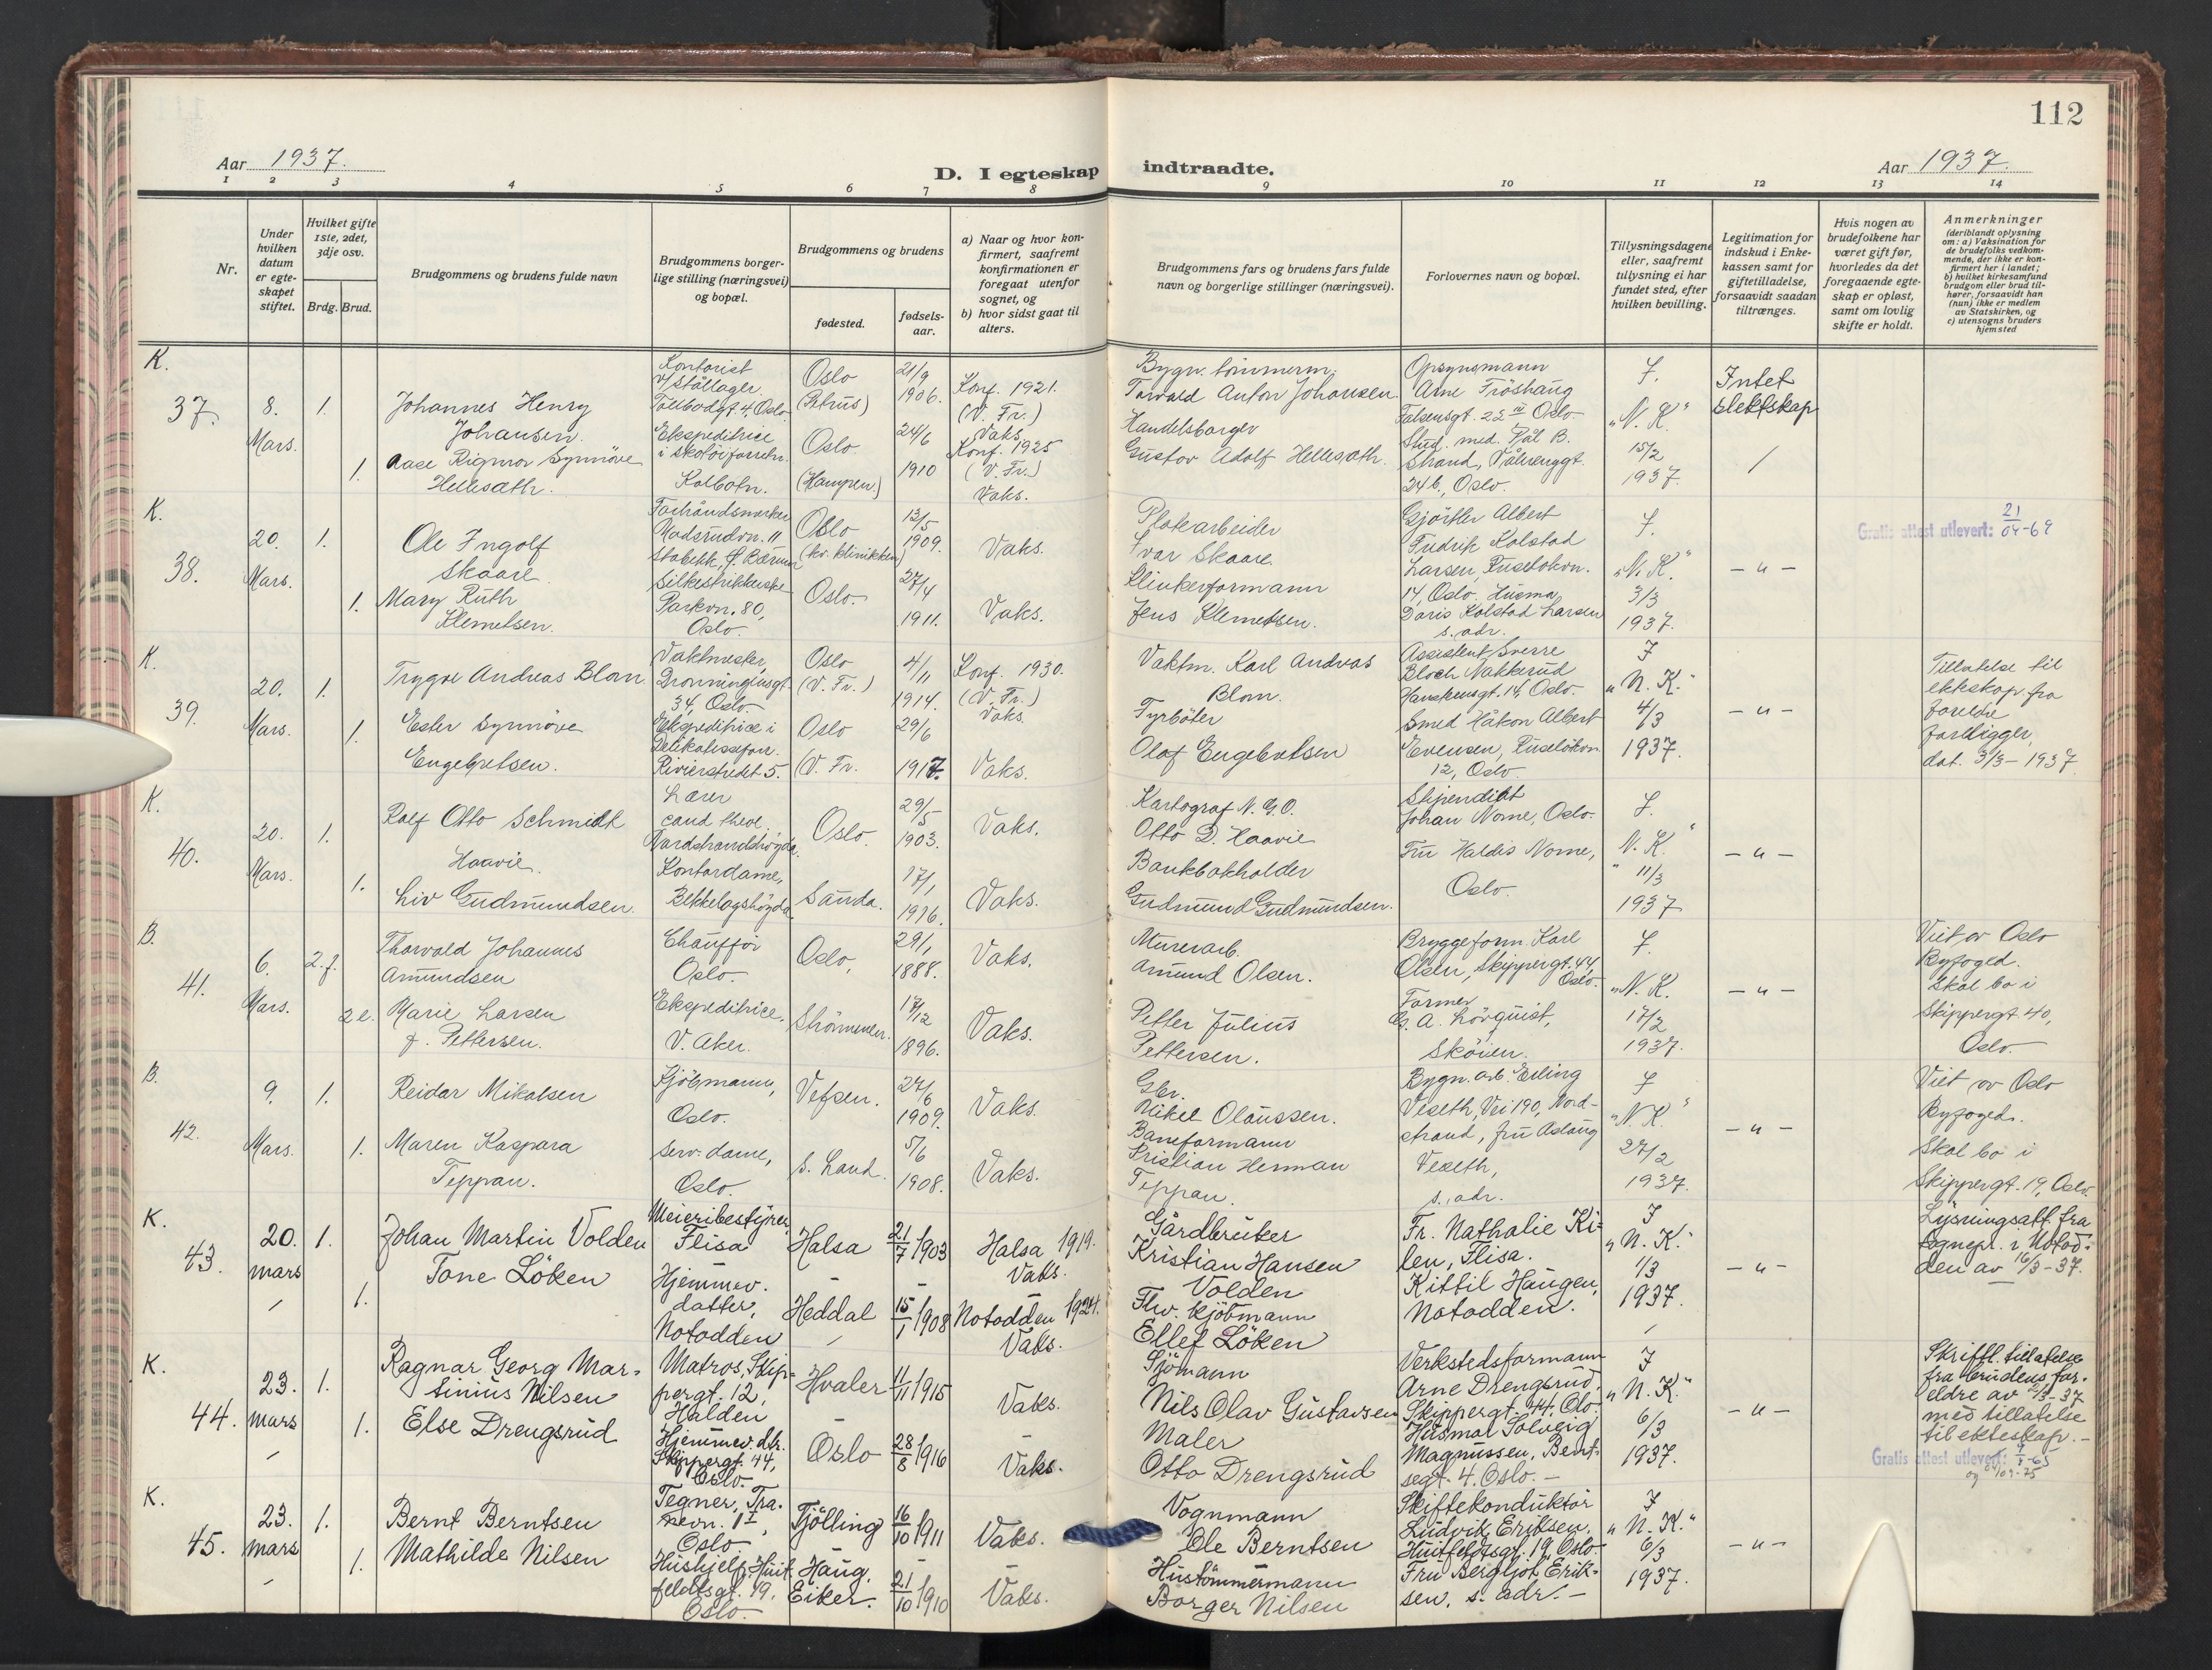 112
Aar 1937.
D. I egteskap indtraadte.
Aar 1937.
1 2 3 4 5 6 7 8 9 10 11 12 13 14
Nr.
Under hvilken datum er egteskapet stiftet.
Hvilket gifte 1ste, 2det, 3dje osv.
Brdg. Brud.
Brudgommens og brudens fulde navn
Brudgommens borgerlige stilling (næringsvei) og bopæl.
Brudgommens og brudens
fødested.
fødselsaar.
a) Naar og hvor konfirmert, saafremt konfirmationen er foregaat utenfor sognet, og
b) hvor sidst gaat til alters.
Brudgommens fars og brudens fars fulde navn og borgerlige stillinger (næringsvei).
Forlovernes navn og bopæl.
Tillysningsdagene eller, saafremt tillysning ei har fundet sted, efter hvilken bevilling.
Legitimation for indskud i Enkekassen samt for giftetilladelse, forsaavidt saadan tiltrænges.
Hvis nogen av brudefolkene har været gift før, hvorledes da det foregaaende egteskap er opløst, samt om lovlig skifte er holdt.
Anmerkninger
(deriblandt oplysning om: a) Vaksination for de brudefolks vedkommende, der ikke er konfirmert her i landet;
b) hvilket kirkesamfund brudgom eller brud tilhører, forsaavidt han (hun) ikke er medlem av Statskirken, og
c) utensogns bruders hjemsted
K.
37.
8. Mars.
1.
Johannes Henry
Johansen.
Kontorist
v/ Stållager
Tollbodgt. 4, Oslo
Oslo
(Petrus)
21/9
1906.
Konf. 1921.
(V. Fr.)
Vaks.
Bygn. tømmerm.
Torvald Anton Johansen.
1.
Aase Rigmor Synnöve
Hellesæth.
Ekspeditrice
i skotöiforretn.
Kolbotn.
Oslo
(Hampen.)
24/6
1910
Konf. 1925
(V. Fr.)
Vaks.
Handelsborger
Gustav Adolf Hellesæth.
Opsynsmann
Arne Fröshaug
Falsensgt. 22 IV Oslo
Stud. med. Pål B.
Strand, Vålerenggt.
24 b., Oslo.
F.
"N. K."
15/2
1937.
Intet
slektskap
/
K.
38.
20. Mars.
1.
Ole Ingolf
Skaare.
Madsrudvn. 11
Stabekk, p. Bærum
Oslo
(kv. klinikken)
13/5
1909.
Vaks.
Platearbeider
Ivar Skaare.
1.
Mary Ruth
Klemetsen.
Silkestrikkerske
Parkvn. 80,
Oslo.
Oslo.
27/4
1911.
Vaks.
Klinkerformann
Jens Klemetsen.
Gjörtler Albert
Fredrik Kolstad
Larsen, Ruselökvn.
14, Oslo. Husmor
Doris Kolstad Larsen
s. adr.
F.
"N. K."
3/3
1937.
- " -
Gratis attest utlevert: 21/04-69
K.
39.
20. Mars.
1.
Trygve Andreas Blom
Vaktmester,
Dronningensgt.
34, Oslo.
Oslo
(V. Fr.)
4/11
1914.
Konf. 1930.
(V. Fr.)
Vaks.
Vaktm. Karl Andreas
Blom.
1.
Ester Synnöve
Engebretsen.
Ekspeditrice i
Delikatesseforr.
Rivierstredet 5.
Oslo
(V. Fr.
29/6
1917.
Vaks.
Fyrböter
Olaf Engebretsen
Assistent Sverre
Bloch Nakkerud
Hauskensgt. 14, Oslo.
Smed Håkon Albert
Evensen, Ruselökvn.
12, Oslo.
F
"N. K."
4/3
1937.
- " -
Tillatelse til
ekteskap fra
foreldre
foreligger,
dat. 3/3-1937
K.
40.
20. Mars.
1.
Rolf Otto Schmidt
Haavie.
Lærer
cand. theol.
Nordstrandshøgda.
Oslo.
29/5
1903.
Vaks.
Kartograf N. G. O.
Otto D. Haavie
1.
Liv Gudmundsen.
Kontordame,
Bekkelagshøgda
Sauda.
17/1
1916.
Vaks.
Bankbokholder
Gudmund Gudmundsen.
Stipendiat
Johan Nome, Oslo.
Fru Haldis Nome,
Oslo.
F.
"N. K."
11/3
1937
- " -
B.
41.
6. Mars.
2. f.
Thorvald Johannes
Amundsen
Chauffør
Oslo.
Oslo,
29/1
1888.
Vaks.
Murerarb.
Amund Olsen.
2 e.
Marie Larsen
f. Pettersen.
Ekspeditrice,
V. Aker.
Strömmen.
17/12
1896.
Vaks.
Petter Julius
Pettersen.
Bryggeform. Karl
Olsen, Skippergt. 44,
Oslo.
Former
G. A. Lövquist,
Sköien.
F.
"N. K.
17/2
1937.
- " -
Viet av Oslo
Byfoged.
Skal bo i
Skippergt. 40,
Oslo.
B.
42.
9. Mars.
1.
Reidar Mikalsen
Kjöbmann,
Oslo.
Vefsen.
27/6
1909.
Vaks.
Gbr.
Mikal Olaussen.
1.
Maren Kaspara
Teppan.
Serv. dame,
Oslo.
S. Land.
5/6
1908.
Vaks.
Baneformann
Kristian Herman
Teppan.
Bygn. arb. Erling
Veseth, Vei 190, Nordstrand, fru Aslaug
Veseth,
s. adr.
F
"N. K."
27/2
1937.
- " -
Viet av Oslo
Byfoged.
Skal bo i
Skippergt. 19, Oslo.
K.
43.
20. mars
1.
Johan Martin Volden
Meieribestyrer,
Flisa
Halsa
21/7 1903
Halsa 1919.
Vaks.
Gårdbruker
Kristian Hansen
Volden
1.
Tone Löken
Hjemmev.
datter,
Notodden
Heddal
15/1 1908
Notodden 1924.
Vaks.
Fhv. kjöbmann
Ellef Löken
Fr. Nathalie Kilen, Flisa.
Kittil Haugen,
Notodden.
F
"N. K."
1/3
1937.
- " -
Lysningsatt. fra
sognepr. i Notodden av 16/3-37.
K.
44.
23. mars
1.
Ragnar Georg Martinius Nilsen
Matros, Skippergt. 12,
Halden
Hvaler
11/11 1915
Vaks.
Sjömann
Nils Olav Gustavsen
1.
Else Drengsrud
Hjemmev. dtr.
Skippergt. 44,
Oslo.
Oslo
28/8 1916
Vaks.
Maler
Otto Drengsrud
Verkstedsformann
Arne Drengsrud,
Skippergt. 44. Oslo
Husmor Solveig
Magnussen, Bentsegt. 4. Oslo. -
F
"N. K."
6/3
1937.
- " -
Skriftl. tillatelse
fra brudens foreldre av 2/3-37
med tillatelse
til ekteskap. -
Gratis attest utlevert:
K.
45.
23. mars
1.
Bernt Berntsen
Tegner, Tranevn. 1 I,
Oslo
Tjölling
16/10 1911
Vaks.
Vognmann
Ole Berntsen
1.
Mathilde Nilsen
Hushjelp. Huitfeldtsgt. 19.
Oslo.
Haug.
Eiker.
21/10 1910
Vaks.
Hustömmermann
Borger Nilsen
Skiftekonduktör
Ludvik Eriksen.
Huitfeldtsgt. 19, Oslo.
Fru Bergljot Eriksen. s. adr. -
F
"N. K."
6/3
1937.
- " -